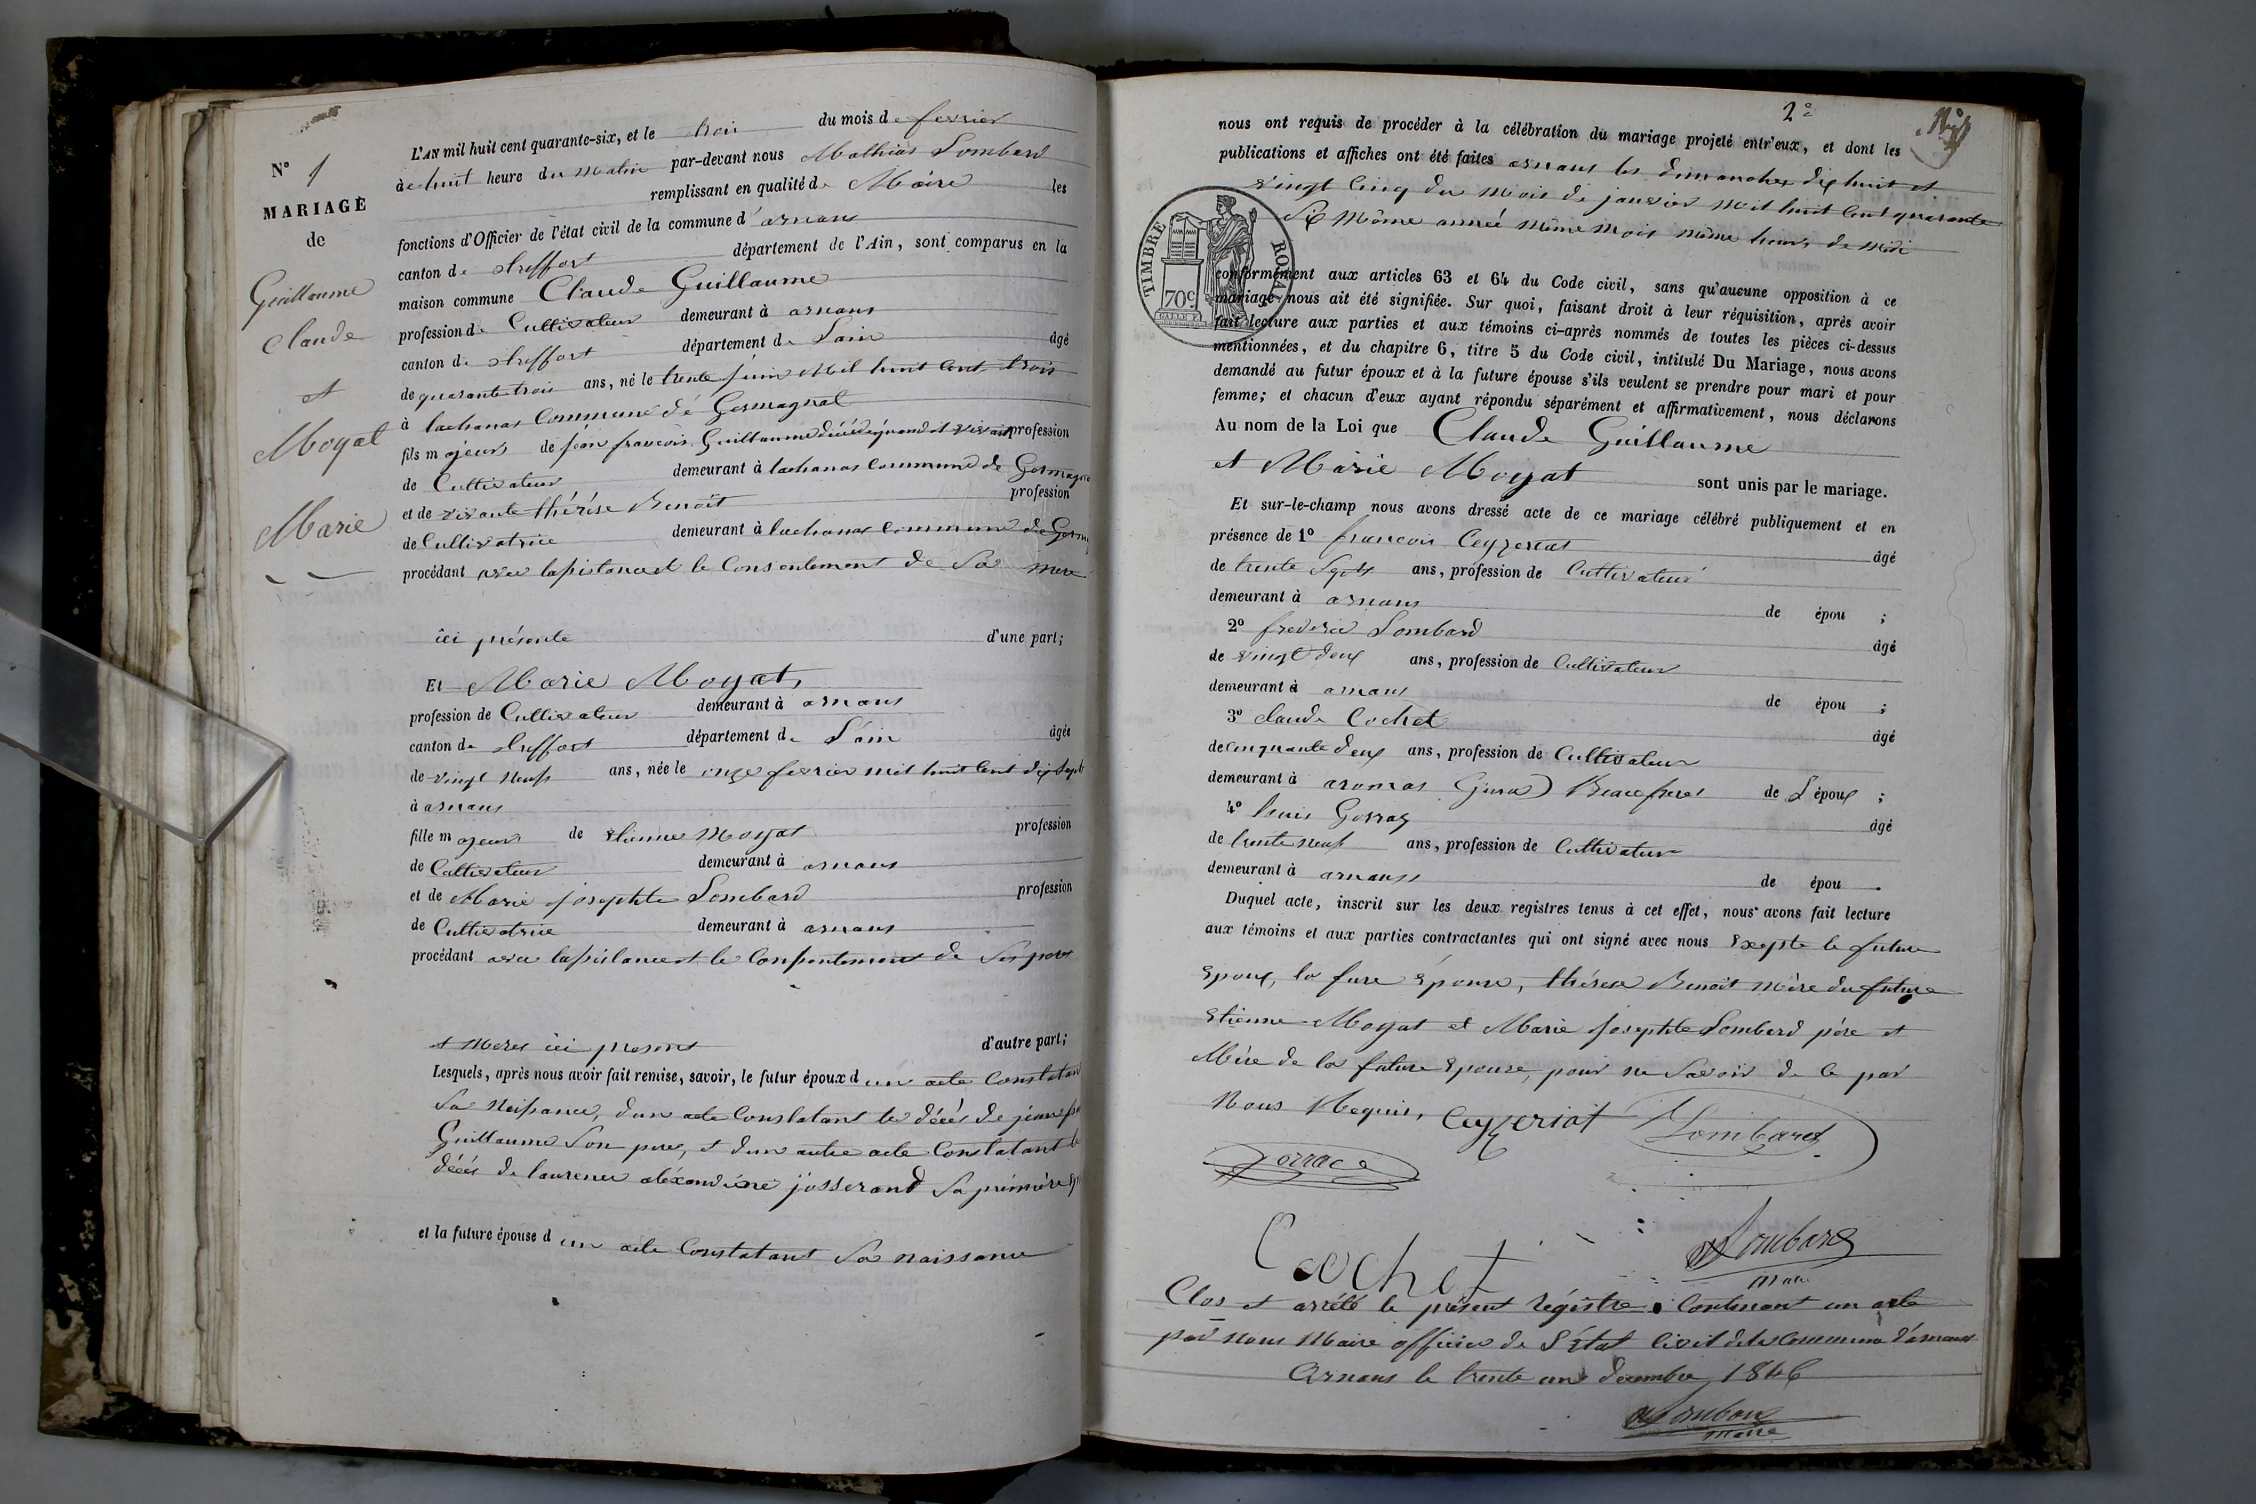 N° 1
MARIAGE
de
Guillaume
Claude
et
Moyat
Marie
L'AN mil huit cent quarante-six, et le trois du mois de fevrier
à huit heure du matin par-devant nous Mathias Lombard
remplissant en qualité de Maire les
fonctions d'Officier de l'état civil de la commune d'arnans
canton de treffort département de l'Ain, sont comparus en la
maison commune Claude Guillaume
profession de Cultivateur demeurant à arnans
canton de treffort département de Lain âgé
de quarante trois ans, né le trente juin mil huit cent trois
à lachanas Commune de Germagnat
fils majeur de jean francois Guillaume décédé quand il vivait profession
de Cultivateur demeurant à lachanas commune de Germagna
et de vivante thérése Benoit profession
de Cultivatrice demeurant à lachanas commune de Germ
procédant avec lasistance et le Consentement de Sa mere
ici présente d'une part;
Et Marie Moyat,
profession de Cultivateur demeurant à arnans
canton de treffort département de L'ain âgée
de vingt neuf ans, née le onze fevrier mil huit cent dix sept
à arnans
fille majeur de Etienne Moyat profession
de Cultivateur demeurant à arnans
et de Marie josephte Lombard profession
de Cultivatrice demeurant à arnans
procédant avec lasistance et le Consentement de Ses pere
et Mere ici present d'autre part;
Lesquels, après nous avoir fait remise, savoir, le futur époux d'un acte Constatant
Sa Naissance, d'un acte Constatant le décés de jean fra
Guillaume Son pere, et d'un autre acte Constatant le
décés de laurence aléxandrine josserand Sa première
et la future épouse d'un acte Constatant Sa naissance
2e
nous ont requis de procéder à la célébration du mariage projeté entr'eux, et dont les
publications et affiches ont été faites arnans les dimanches dix huit et
vingt Cinq du Mois de janvier Mil huit Cent quarante
Six Même année Même Mois Même heure de Midi
TIMBRE ROYAL
70c
conformément aux articles 63 et 64 du Code civil, sans qu'aucune opposition à ce
mariage nous ait été signifiée. Sur quoi, faisant droit à leur réquisition, après avoir
fait lecture aux parties et aux témoins ci-après nommés de toutes les pièces ci-dessus
mentionnées, et du chapitre 6, titre 5 du Code civil, intitulé Du Mariage, nous avons
demandé au futur époux et à la future épouse s'ils veulent se prendre pour mari et pour
femme; et chacun d'eux ayant répondu séparément et affirmativement, nous déclarons
Au nom de la Loi que Claude Guillaume
et Marie Moyat sont unis par le mariage.
Et sur-le-champ nous avons dressé acte de ce mariage célébré publiquement et en
présence de 1° francois Ceyzeriat âgé
de trente Sept ans, profession de Cultivateur
demeurant à arnans de épou ;
2° frederic Lombard âgé
de vingt deux ans, profession de Cultivateur
demeurant à arnans de épou ;
3° claude Cochet âgé
de cinquante deux ans, profession de Cultivateur
demeurant à aromas (Jura) Beaufrere de L'époux ;
4° louis Gorraz âgé
de trente neuf ans, profession de Cultivateur
demeurant à arnans de épou .
Duquel acte, inscrit sur les deux registres tenus à cet effet, nous avons fait lecture
aux témoins et aux parties contractantes qui ont signé avec nous Exepte le future
Epoux, la fure Épouse, thérese Benoit mère du future
Etienne Moyat et Marie josephte Lombard pére et
Mère de la future Epouse, pour ne Savoir de ce par
Nous Requis, Ceyzeriat Lombard
Gorrace
Cochet
M Lombard
Maire
Clos et arrété le présent régistre Contenant un acte
par nous Maire officier de L'État Civil de la commune d'arnans
Arnans le trente un decembre 1846
M Lombard
Maire